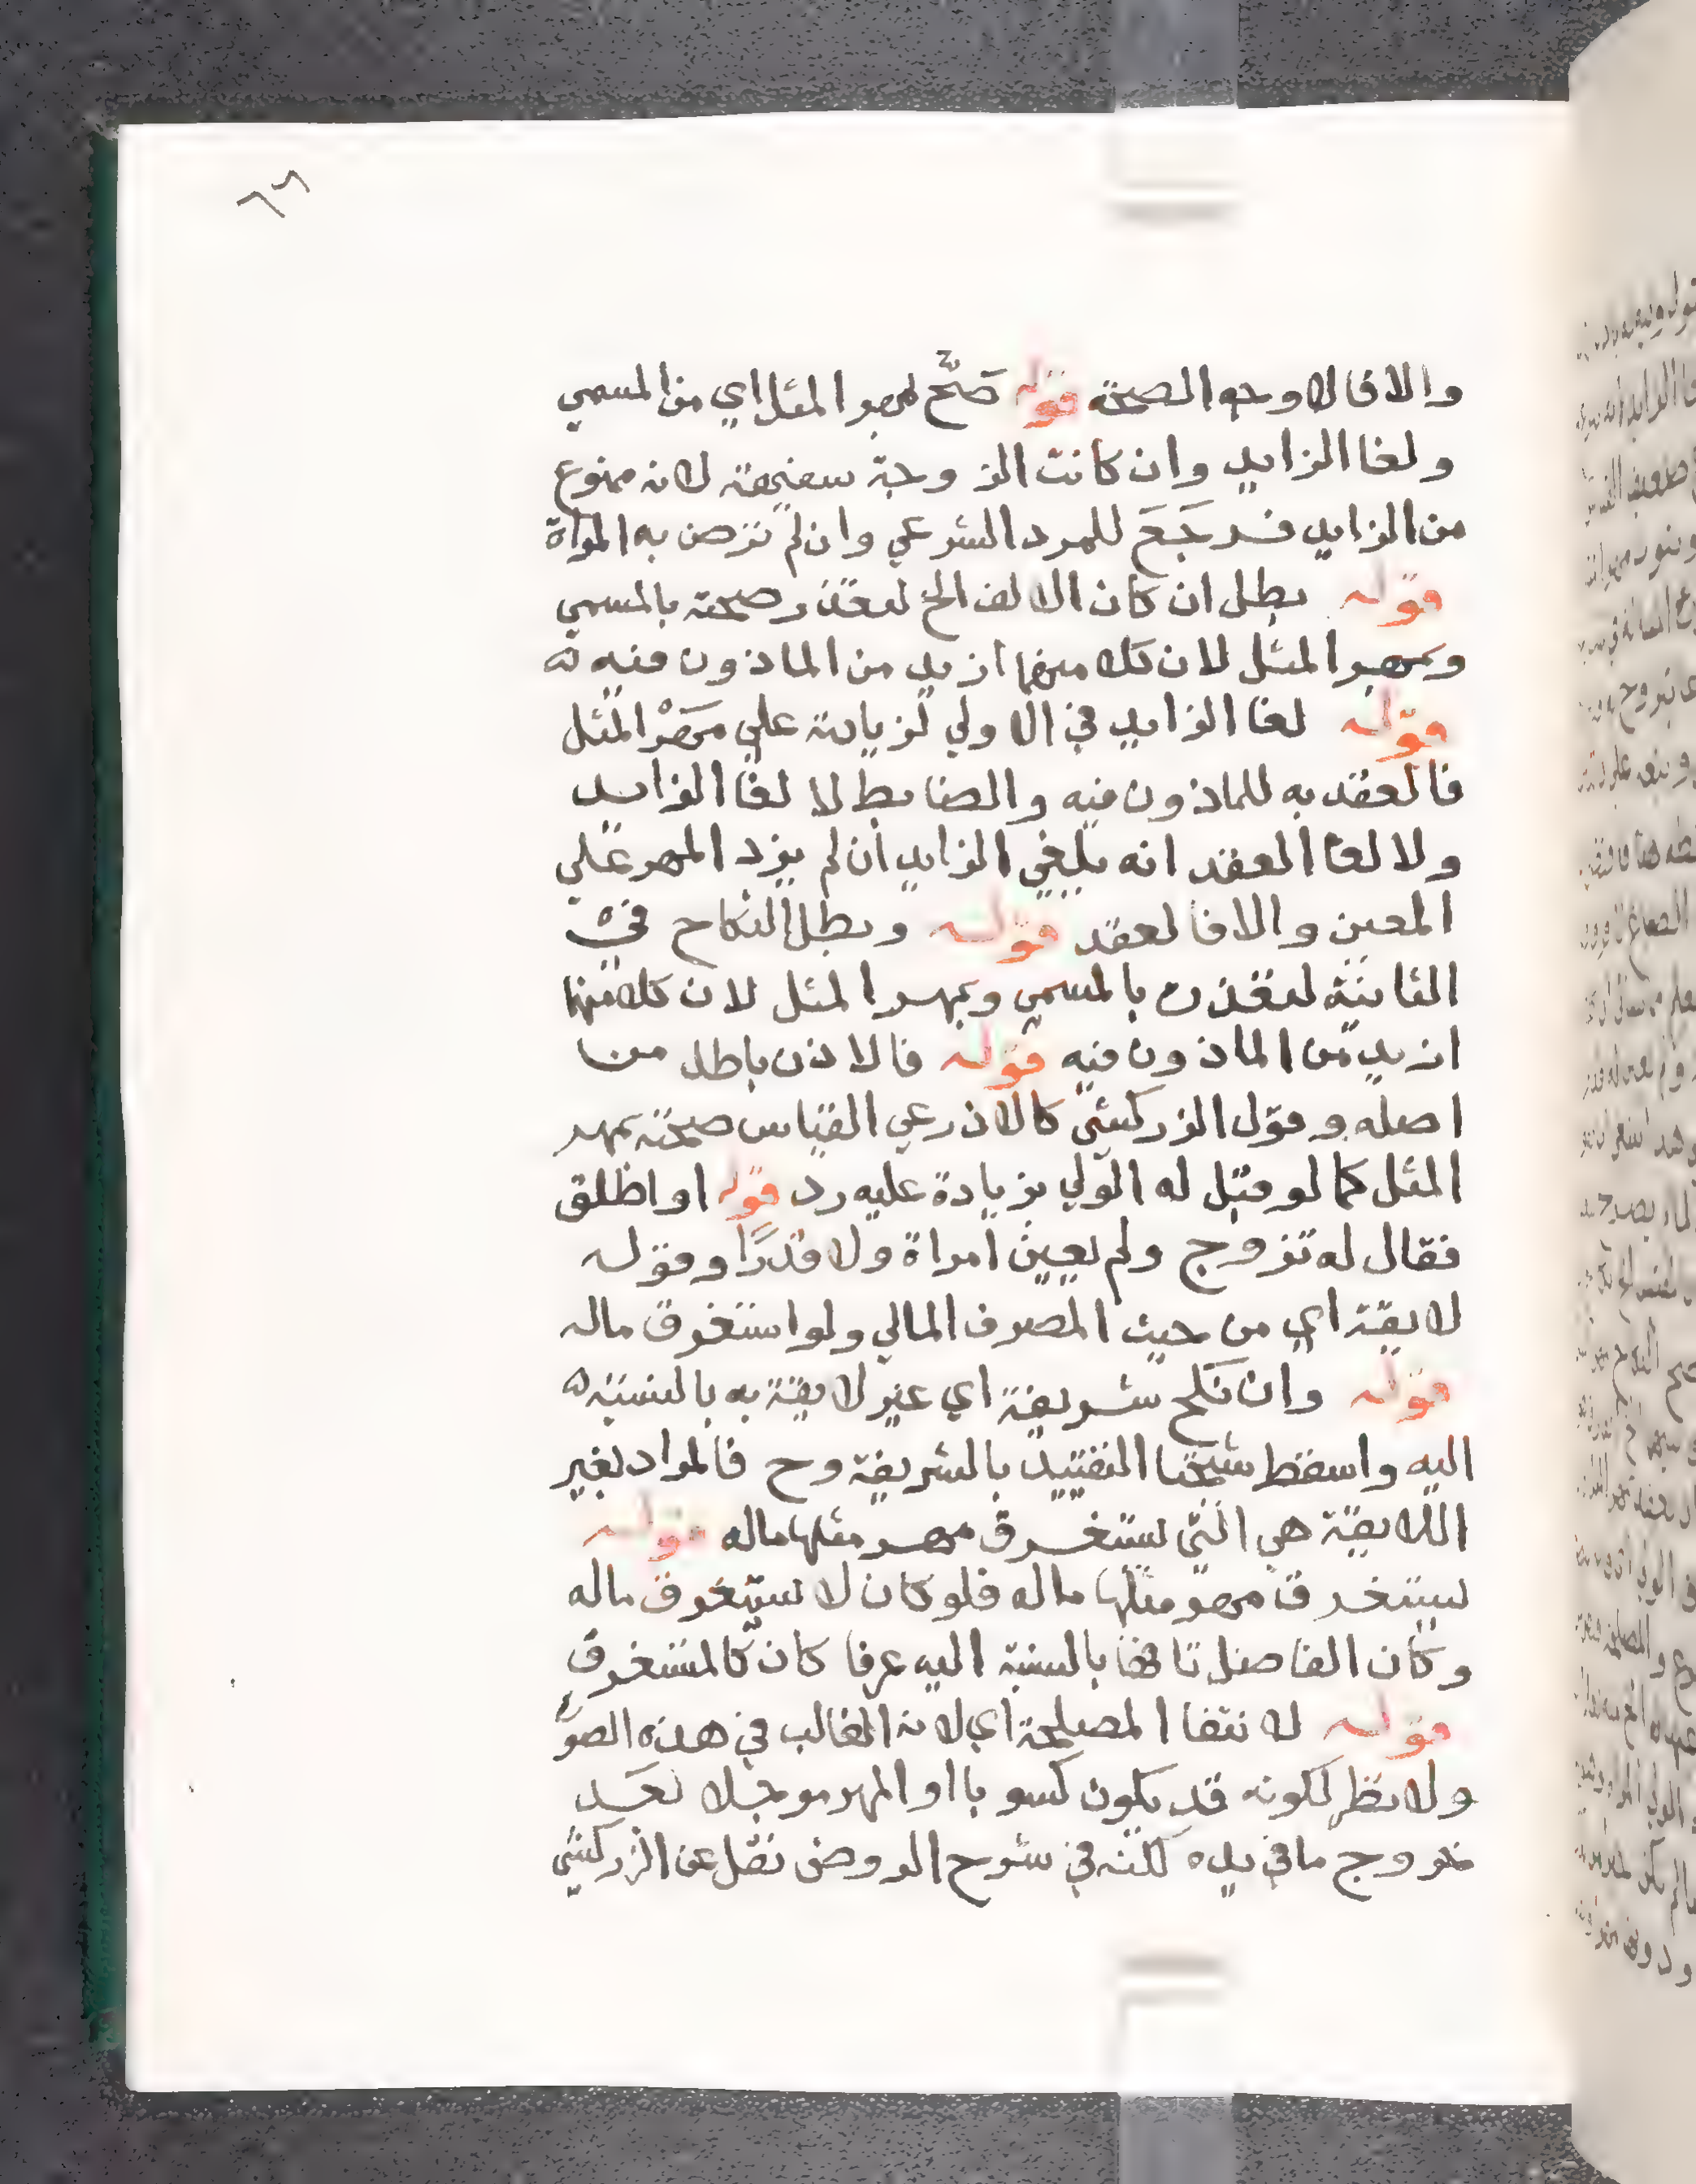 ٦٦
والا فالاوجه الصحة قوله صَحَّ بمهر المثل اي من المسمي
ولغا الزايد وان كانت الزوجة سفيهة لانه ممنوع
من الزايد فرجَعَ للمرد الشرعي وان لم ترض به المراة
قوله بطل ان كان الالف الخ لتعذر صحته بالمسمي
وبمهر المثل لان كلا منهما ازيد من الماذون فيه
قوله لغا الزايد في الاولي لزيادته علي مَهْر المثل
فالعقد به للماذون فيه والضابط لالغا الزايد
ولالغا العقد انه يلغي الزايد ان لم يزد المهر علي
المعين والا فالعقد قوله وبطل النكاح في
الثانية لتعذره بالمسمي وبمهر المثل لان كلا منهما
ازيد من الماذون فيه قوله فالاذن باطل من
اصله وقول الزركشي كالاذرعي القياس صحته بمهر
المثل كما لو قبل له الولي بزيادة عليه رد قوله او اطلق
فقال له تزوج ولم يعين امراة ولا قدرًا وقوله
لايقة اي من حيث المصرف المالي ولو استغرق ماله
قوله وان نكح شريفة اي غير لايقة به بالنسبة
اليه واسقط شيخنا التقييد بالشريفة وح فالمراد بغير
اللايقة هي التي يستغرق مهر مثلها ماله قوله
يستغرق مهر مثلها ماله فلو كان لا يستغرق ماله
وكان الفاضل تافها بالنسبة اليه عرفا كان كالمستغرق
قوله لانتفا المصلحة اي لانه الغالب في هذه الصور
ولا نظر لكونه قد يكون كسوبا او المهر موجلا لعَد
خروج ما في يده لكنه في شرح الروض نقل عن الزركشي